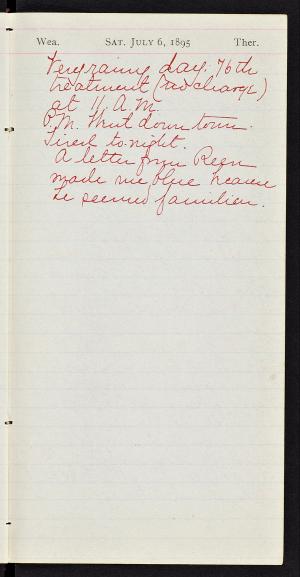 Wea. Sat. July 6, 1895 Ther.
Very rainy day. 76th
treatment (no charge)
at 11 A.M.
P.M. Went down town.
Tired to-night.
A letter from
made me blue
he seemed familiar.